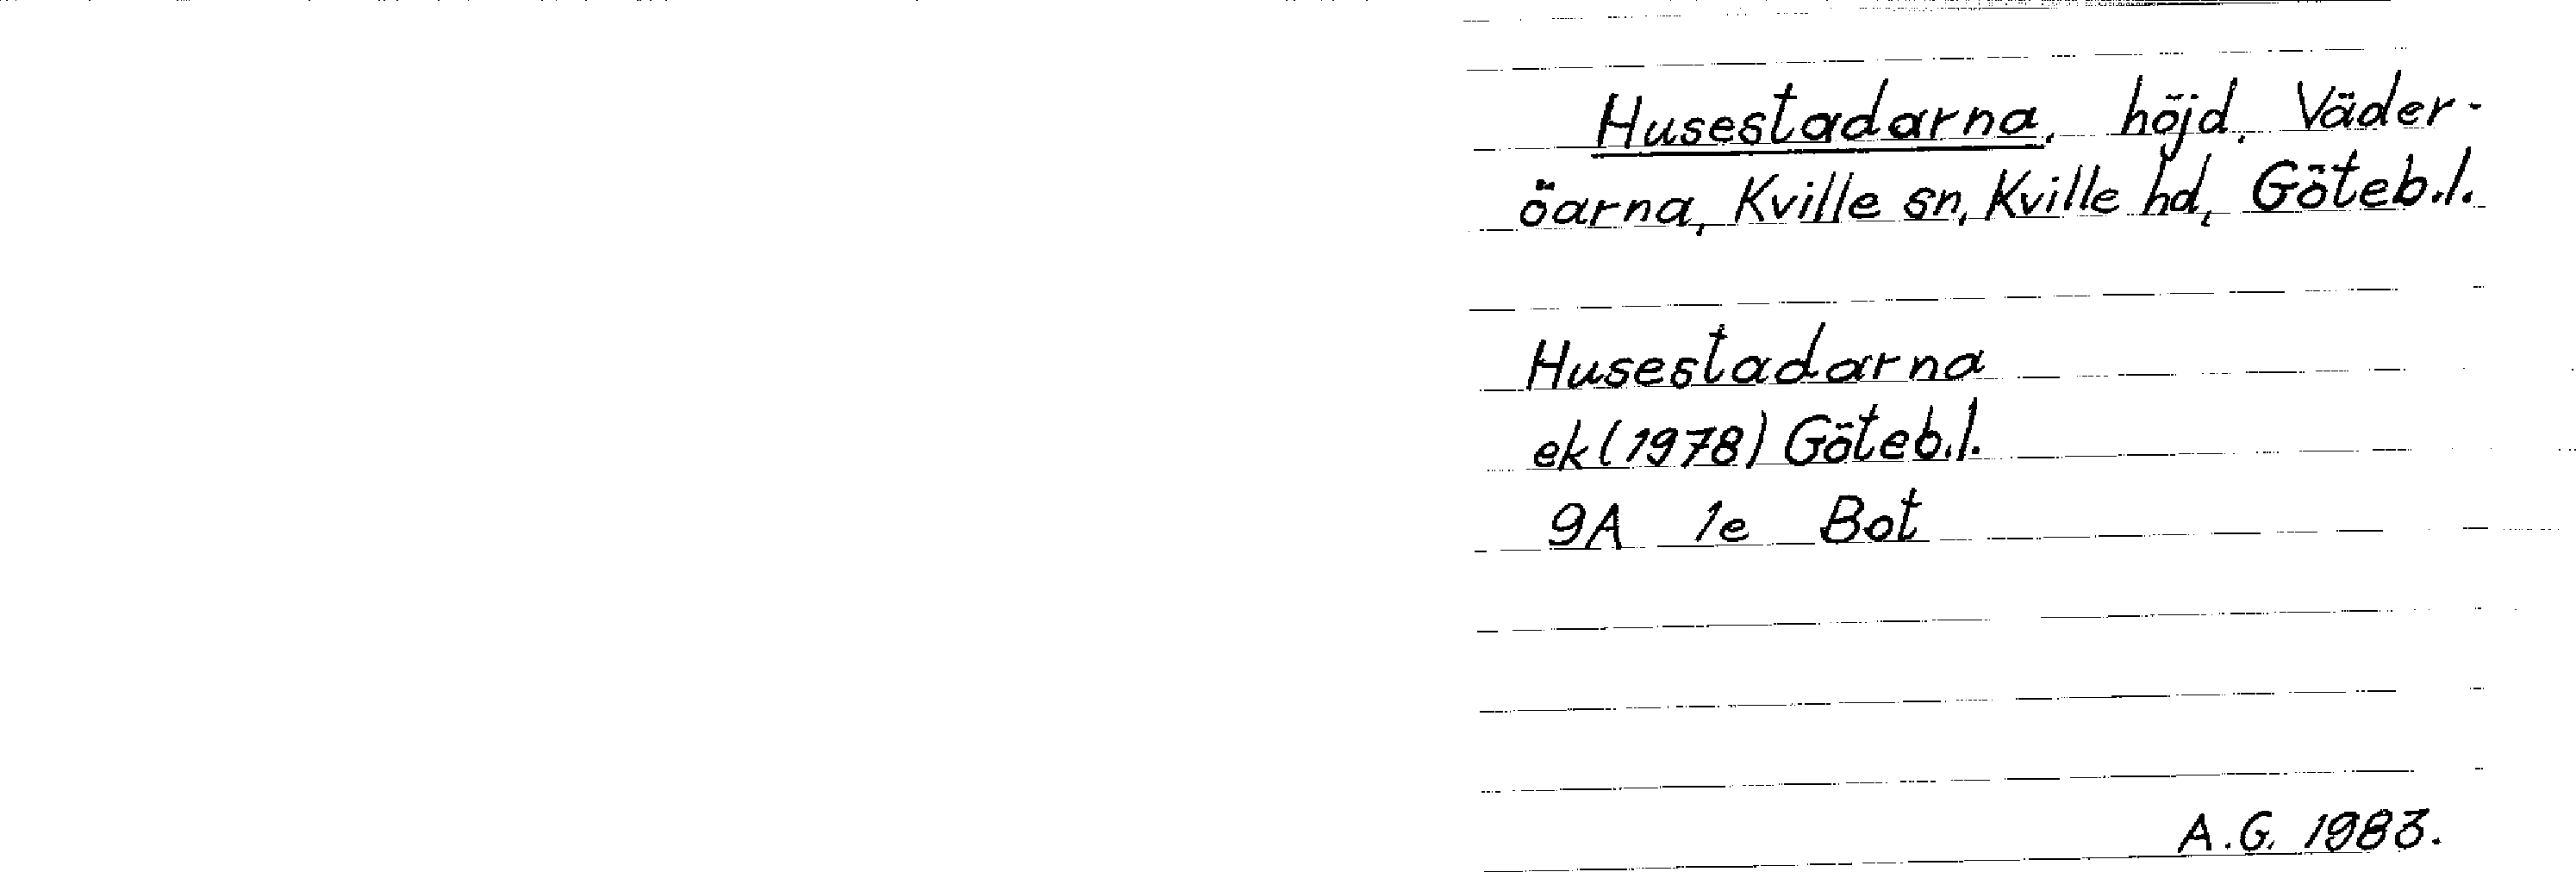 Husestadarna, höjd, Väder-
öarna, Kville sn, Kville hd, Göteb.l.
Husestadarna
ek (1978) Göteb.l.
9A 1e Bot
A.G. 1983.